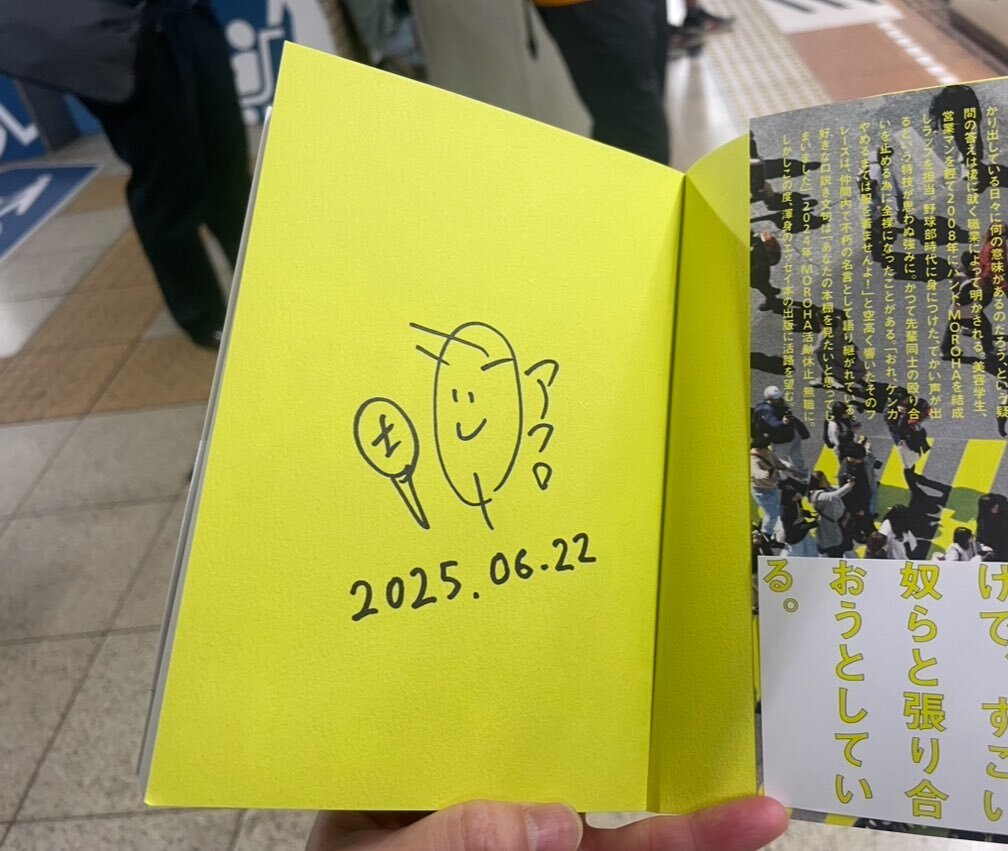 アフロ
士
2025.06.22
かり出している日々に何の意味があるのだろう、という疑
問の答えは後に就く職業によって明かされる。美容学生、
営業マンを経て2008年にバンド、MOROHAを結成
しラップを担当。野球部時代に身につけた、でかい声が出
るという特技が思わぬ強みに。かつて先輩同士の殴り合
いを止める為に全裸になったことがある。「おれ、ケンカ
やめるまでは服を着ませんよ!」と空高く響いたそのフ
レーズは、仲間内で不朽の名言として語り継がれている。
好きな口説き文句は「あなたの本棚を見たいと思ってし
まいました」2024年、MOROHA活動休止、無職に。
しかしこの度、渾身のエッセイ本の出版に活路を望む。
けて、すごい
奴らと張り合
おうとしてい
る。